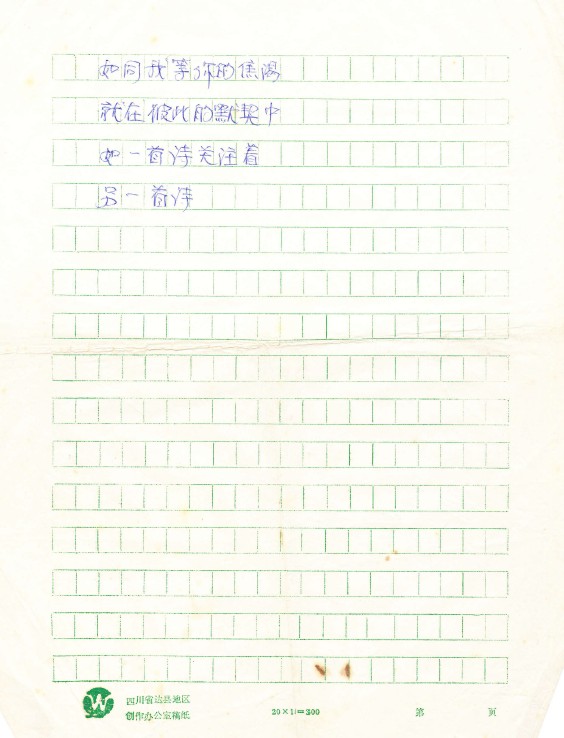 如同我等你的焦渴
就在彼此的默契中
如一首诗关注着
另一首诗
四川省达县地区
创作办公室稿纸
20×15=300
第 页